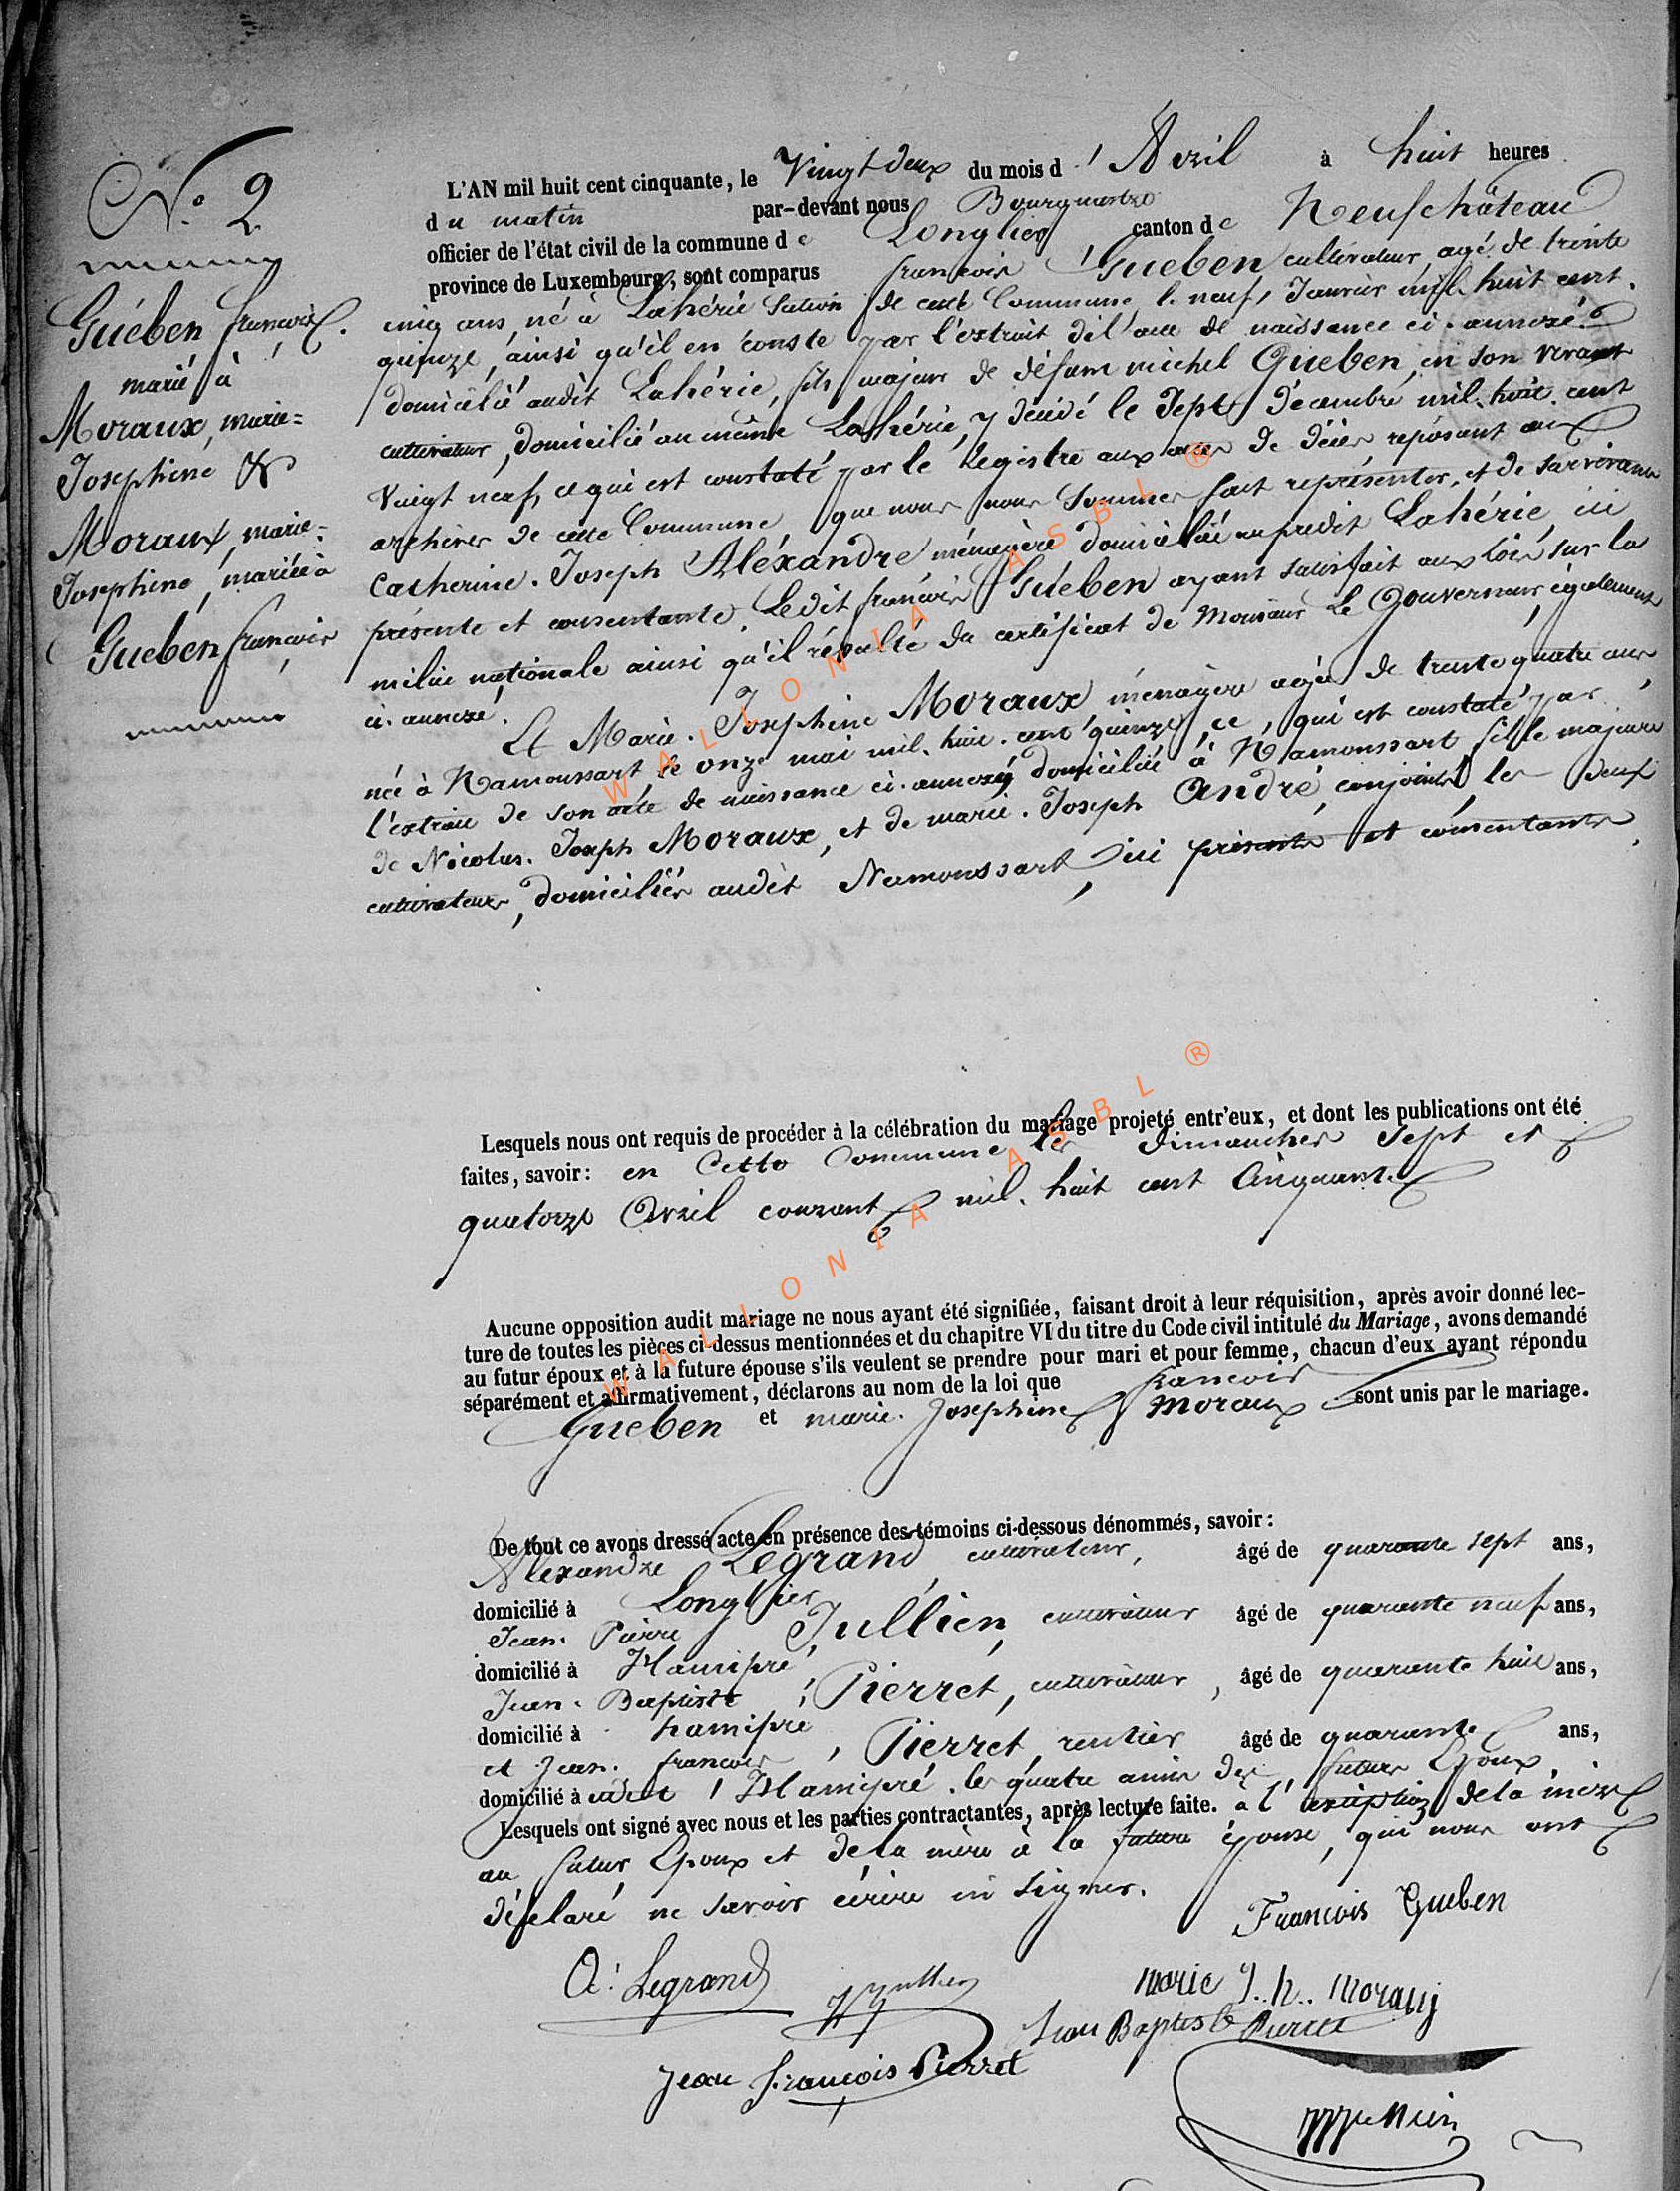 N.° 2
Guében françois.
marié à
Moraux, marie-
Josephine &
Moraux, marie-
Josephine, mariée à
Gueben françois
L'AN mil huit cent cinquante, le Vingt deux du mois d'Avril à huit heures
du matin par-devant nous Bourgmestre
officier de l'état civil de la commune de Longlier canton de Neufchâteau
province de Luxembourg, sont comparus françois Gueben cultivateur agé de trente
cinq ans, né à Lahérie Section de cette Commune, le neuf Janvier mil huit cent.
quinze, ainsi qu'il en conste par l'extrait de l'acte de naissance ci-annexé
domicilié audit Lahérie, fils majeur de défunt michel Gueben, en son vivant
cultivateur, domicilié au même Lahérie, y décédé le Sept Décembre mil-huit-cent
Vingt neuf, ce qui est constaté par le Registre aux actes de décès reposant aux
archives de cette Commune que nous nous sommes fait représenter, et de survivante
Catherine-Joseph Aléxandre ménagère domiciliée au predit Lahérie, ici
présente et consentante. Ledit françois Guében ayant satisfait aux lois sur la
milice nationale ainsi qu'il résulte du certificat de Monsieur Le Gouverneur, également
ci-annexé.
Et Marie-Josephine Moraux ménagère agée de trente quatre ans
née à Namoussart le onze mai mil-huit-cent quinze, ce, qui est constaté par
l'extrait de son acte de naissance ci-annexé domiciliée à Namoussart fille majeure
de Nicolas-Joseph Moraux, et de marie-Joseph André, conjoints, les deux
cultivateurs, domiciliés audit Namoussart, ici présents et consentants.
Lesquels nous ont requis de procéder à la célébration du mariage projeté entr'eux, et dont les publications ont été
faites, savoir: en Cette Commune les dimanches sept et
quatorze Avril courant mil-huit cent Cinquante
Aucune opposition audit mariage ne nous ayant été signifiée, faisant droit à leur réquisition, après avoir donné lec-
ture de toutes les pièces ci-dessus mentionnées et du chapitre VI du titre du Code civil intitulé du Mariage, avons demandé
au futur époux et à la future épouse s'ils veulent se prendre pour mari et pour femme, chacun d'eux ayant répondu
séparément et affirmativement, déclarons au nom de la loi que françois
Gueben et marie-Josephine Moraux sont unis par le mariage.
De tout ce avons dressé acte en présence des témoins ci-dessous dénommés, savoir:
Alexandre Legrand cultivateur, âgé de quarante sept ans,
domicilié à Longlier
Jean-Pierre Jullien, cultivateur âgé de quarante neuf ans,
domicilié à Hamipré
Jean-Baptiste Pierret, cultivateur, âgé de quarante huit ans,
domicilié à hamipré
et Jean-françois Pierret, rentier âgé de quarante ans,
domicilié à Hamipré. les quatre amis des futurs Epoux.
Lesquels ont signé avec nous et les parties contractantes, après lecture faite. a l'exception de la mère
au futur Epoux et de la mère à la future épouse, qui nous ont
déclaré ne savoir écrire ni signer.
Francois Gueben
A. Legrand
Marie J..h.. Moraux
Jean Baptiste Pierret
Jean Francois Pierret
WALLONIA ASBL ®
WALLONIA ASBL ®